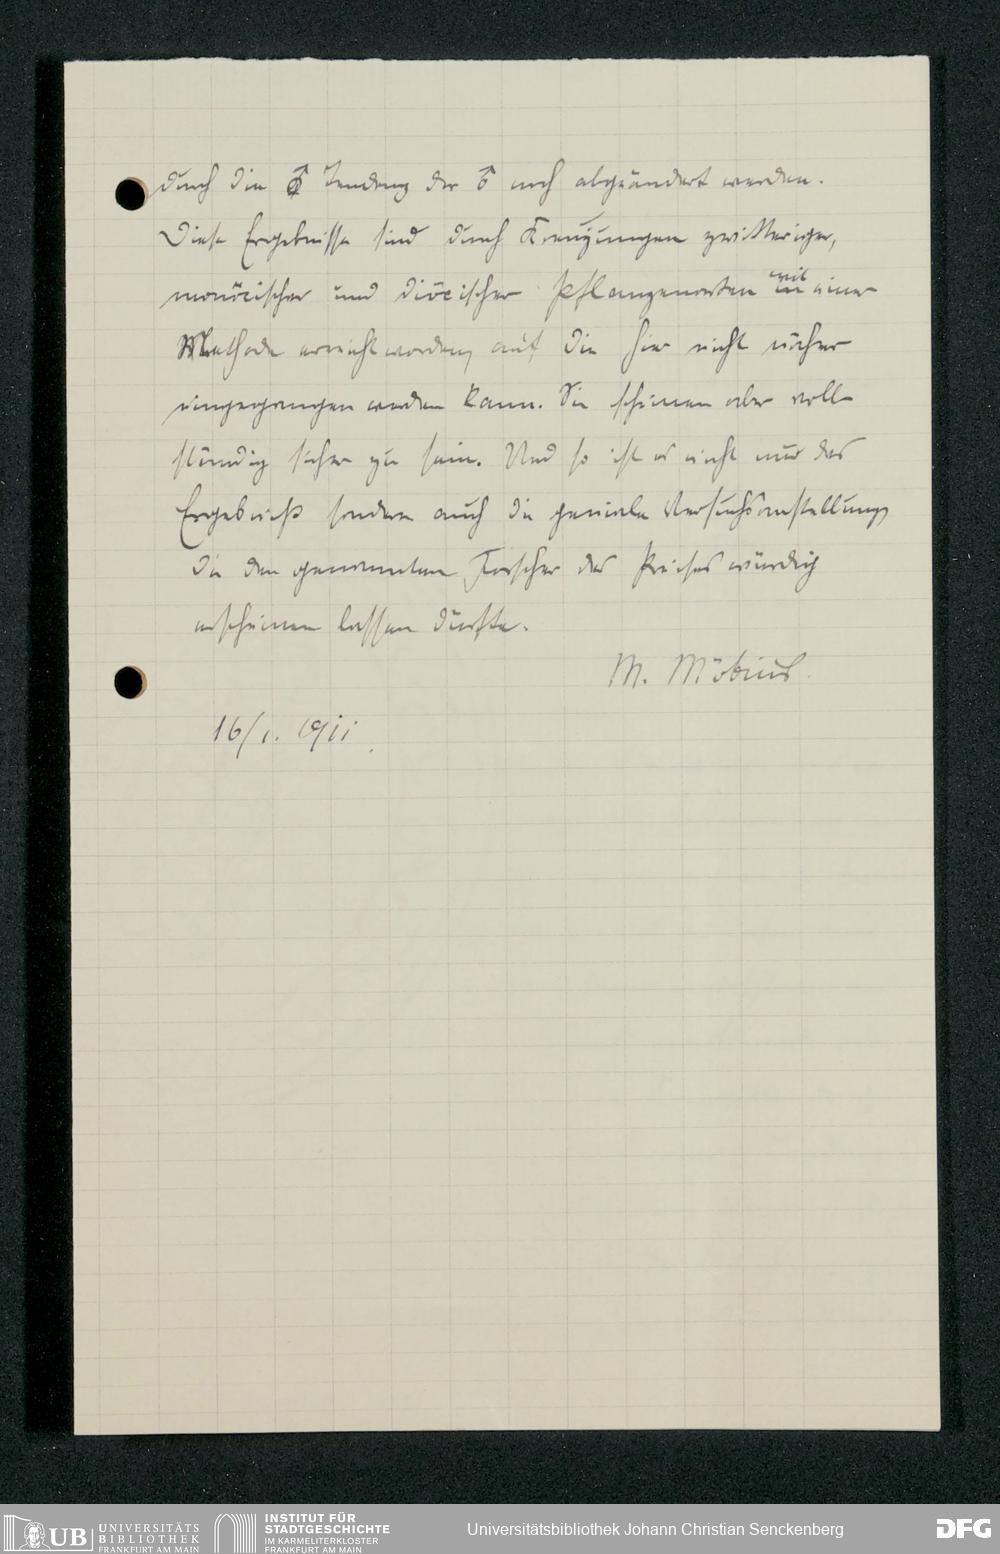 durch die ♂ Tendenz der ♂ noch abgeändert werden.
Diese Ergebnisse sind durch Kreuzungen zwitteriger,
monöcischer und diöcischer Pflanzenarten mit einer
Methode erreicht worden, auf die hier nicht näher
eingegangen werden kann. Sie scheinen aber voll-
ständig sicher zu sein. Und so ist es nicht nur das
Ergebniß sondern auch die geniale Versuchsanstellung
die den genannten Forscher des Preises würdig
erscheinen lassen dürfte.
M. Möbius.
16/1. 1911.
UB UNIVERSITÄTS
BIBLIOTHEK
FRANKFURT AM MAIN
INSTITUT FÜR
STADTGESCHICHTE
IM KARMELITERKLOSTER
FRANKFURT AM MAIN
Universitätsbibliothek Johann Christian Senckenberg
DFG